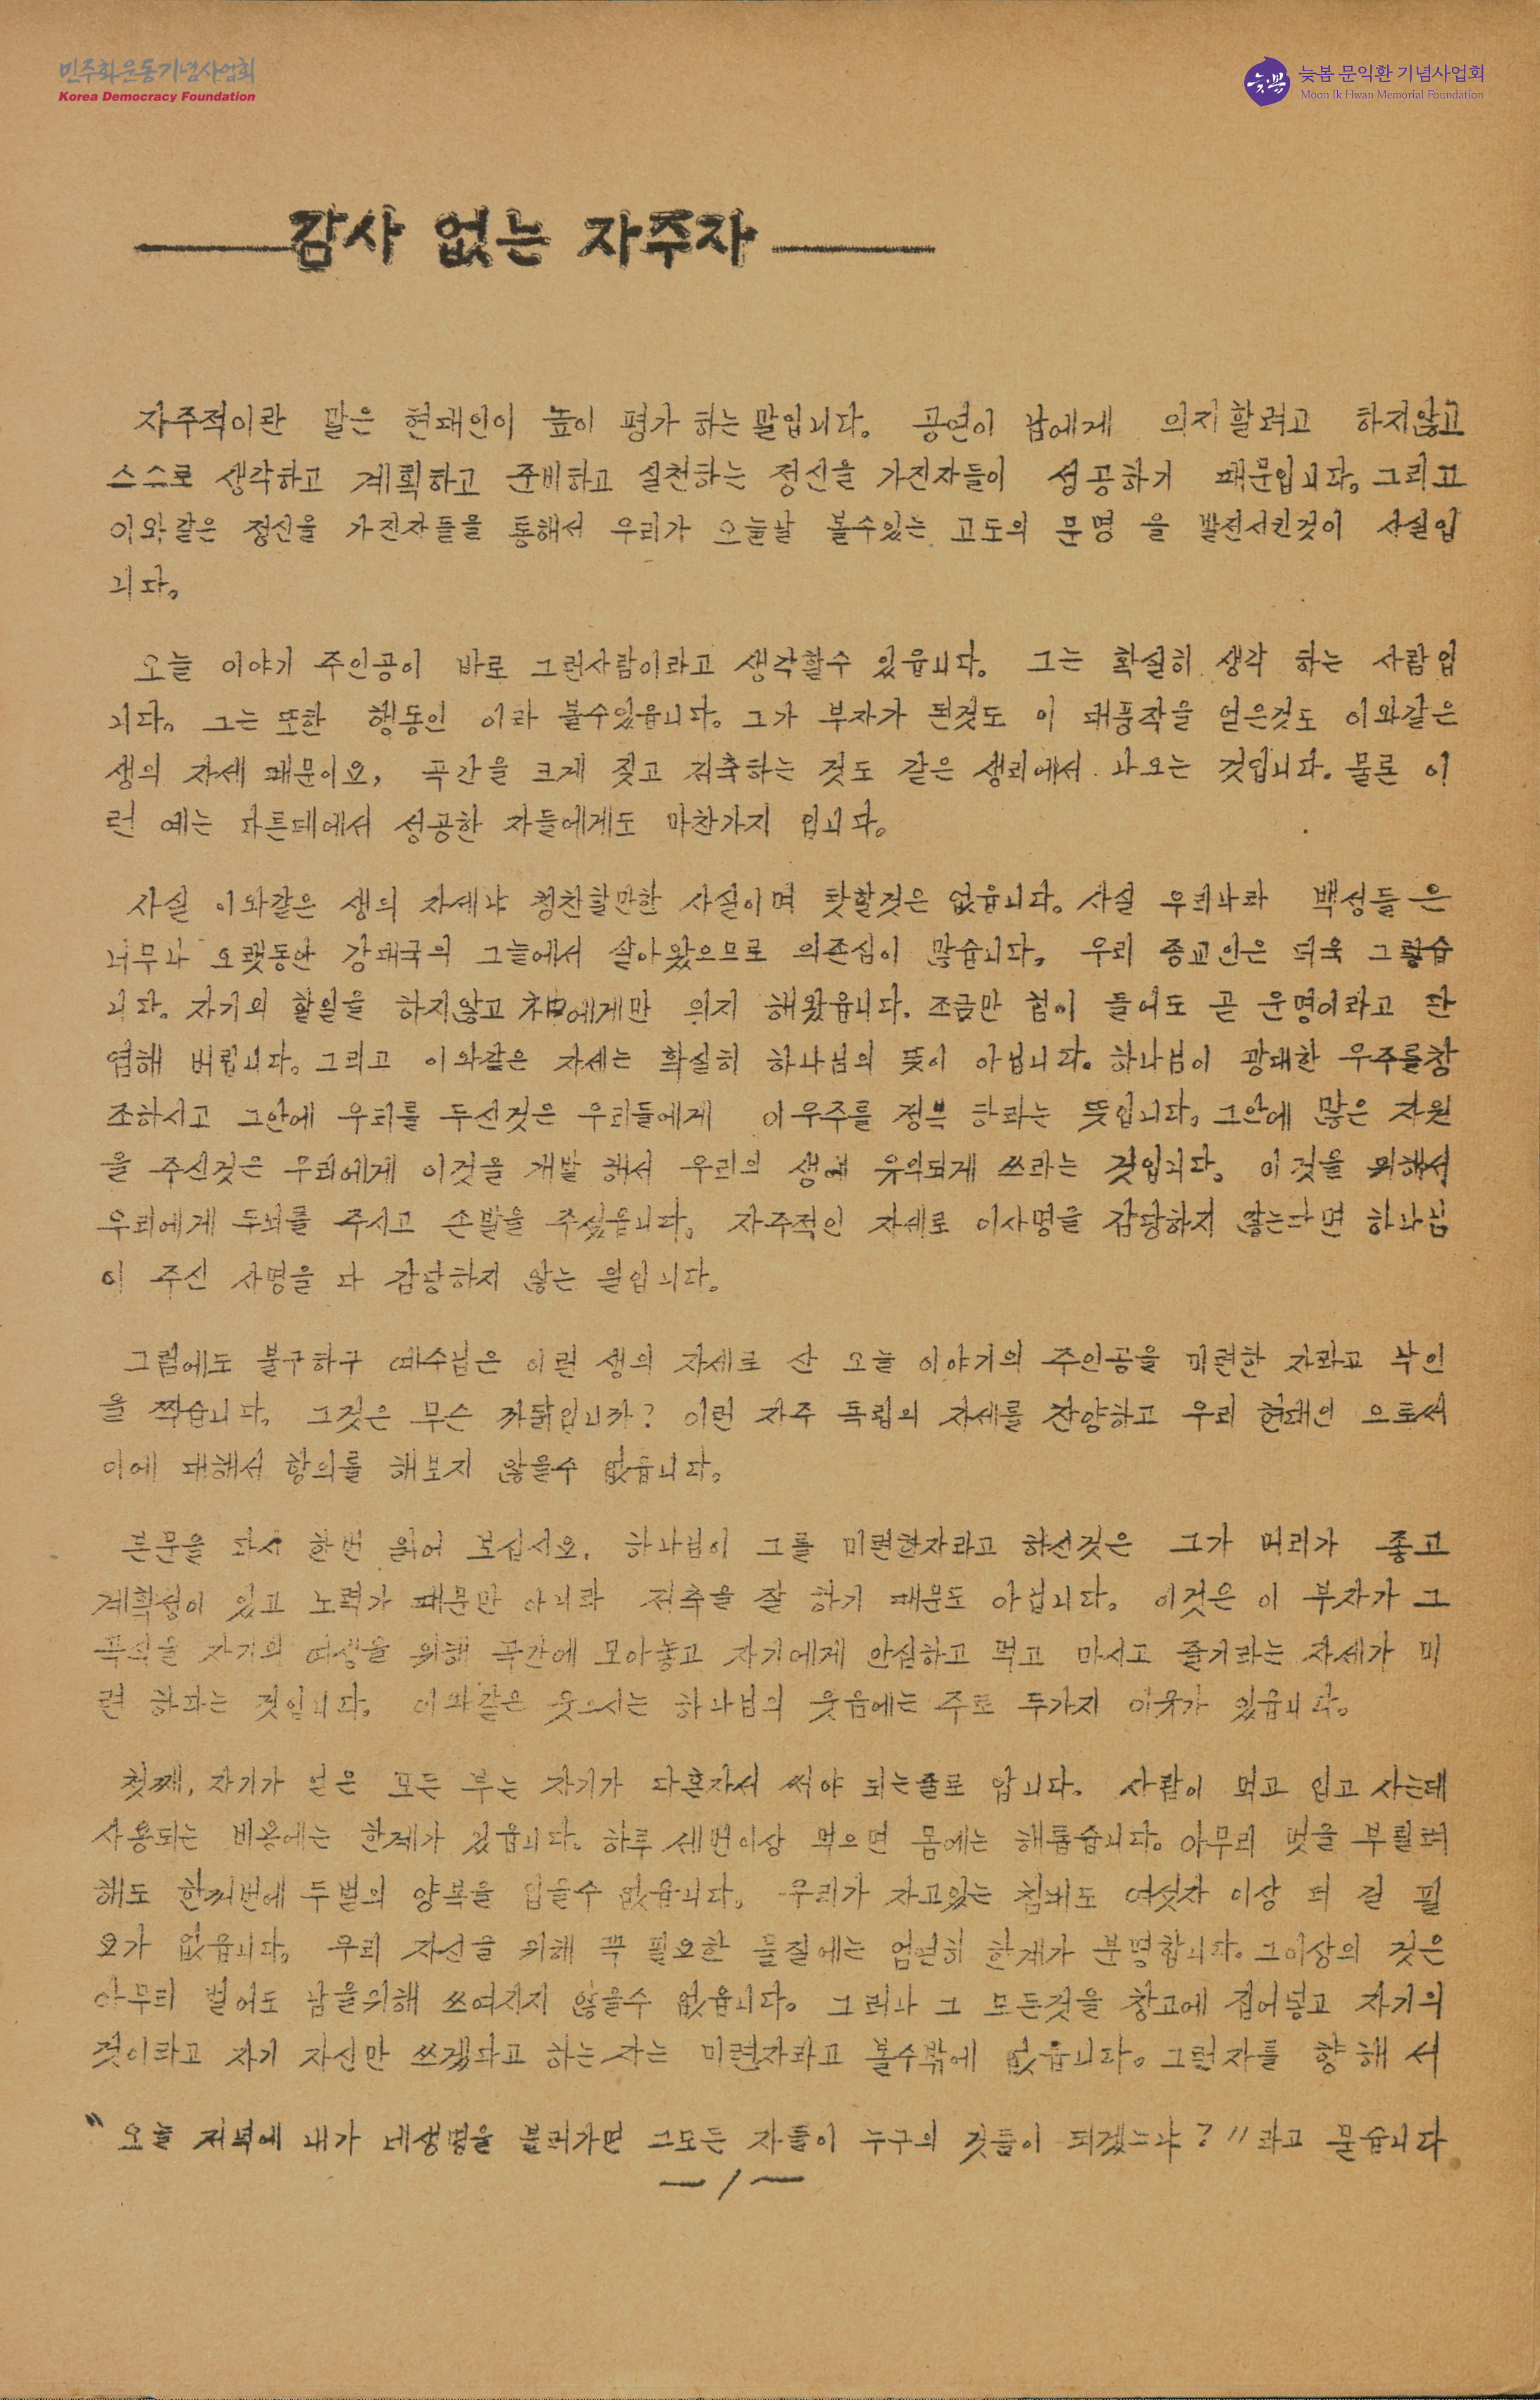 민주화운동기념사업회
Korea Democracy Foundation
늦봄
늦봄 문익환 기념사업회
Moon Ik Hwan Memorial Foundation
감사 없는 자주자
자주적이란 말은 현대인이 높이 평가 하는 말입니다。 공연이 남에게 의지할려고 하지않고
스스로 생각하고 계획하고 준비하고 실천하는 정신을 가진자들이 성공하기 때문입니다。그리고
이와같은 정신을 가진자들을 통해서 우리가 오늘날 볼수있는 고도의 문명 을 발전시킨것이 사실입
니다。
오늘 이야기 주인공이 바로 그런사람이라고 생각할수 있읍니다。 그는 확실히 생각 하는 사람입
니다。 그는 또한 행동인 이라 볼수있읍니다。그가 부자가 된것도 이 대풍작을 얻은것도 이와같은
생의 자세 때문이요, 곡간을 크게 짓고 저축하는 것도 같은 생리에서 나오는 것입니다. 물론 이
런 예는 다른데에서 성공한 자들에게도 마찬가지 입니다。
사실 이와같은 생의 자세냐 칭찬할만한 사실이며 탓할것은 없읍니다。사실 우리나라 백성들은
너무나 오랫동안 강대국의 그늘에서 살아왔으므로 의존심이 많습니다。 우리 종교인은 더욱 그렇습
니다。자기의 할일을 하지않고 神에게만 의지 해왔읍니다. 조금만 힘이 들어도 곧 운명이라고 단
념해 버립니다。그리고 이와같은 자세는 확실히 하나님의 뜻이 아닙니다。하나님이 광대한 우주를창
조하시고 그안에 우리를 두신것은 우리들에게 이우주를 정복 하라는 뜻입니다。그안에 많은 자원
을 주신것은 우리에게 이것을 개발 해서 우리의 생에 유익되게 쓰라는 것입니다。 이것을 위해서
우리에게 두뇌를 주시고 손발을 주셨읍니다。 자주적인 자세로 이사명을 감당하지 않는다면 하나님
이 주신 사명을 다 감당하지 않는 일입니다。
그럼에도 불구하구 예수님은 이런 생의 자세로 산 오늘 이야기의 주인공을 미련한 자라고 낙인
을 찍습니다。 그것은 무슨 까닭입니까? 이런 자주 독립의 자세를 찬양하고 우리 현대인 으로써
이에 대해서 항의를 해보지 않을수 없읍니다。
본문을 다시 한번 읽어 보십시오. 하나님이 그를 미련한자라고 하신것은 그가 머리가 좋고
계획성이 있고 노력가 때문만 아니라 저축을 잘 하기 때문도 아닙니다。 이것은 이 부자가 그
곡식을 자기의 여생을 위해 곡간에 모아놓고 자기에게 안심하고 먹고 마시고 즐기라는 자세가 미
련 하다는 것입니다。 이와같은 웃으시는 하나님의 웃음에는 주로 두가지 이유가 있읍니다。
첫째, 자기가 얻은 모든 부는 자기가 다혼자서 써야 되는줄로 압니다。 사람이 먹고 입고 사는데
사용되는 비용에는 한계가 있읍니다。하루 세번이상 먹으면 몸에는 해롭습니다。아무리 멋을 부릴려
해도 한꺼번에 두벌의 양복을 입을수 없읍니다。 우리가 자고있는 침대도 여섯자 이상 더 길 필
요가 없읍니다。 우리 자신을 위해 꼭 필요한 물질에는 엄연히 한계가 분명합니다。그이상의 것은
아무리 벌어도 남을위해 쓰여지지 않을수 없읍니다。 그러나 그 모든것을 창고에 집어넣고 자기의
것이라고 자기 자신만 쓰겠다고 하는 자는 미련자라고 볼수밖에 없읍니다。그런자를 향해서
"오늘 저녁에 내가 네생명을 불러가면 그모든 자들이 누구의 것들이 되겠느냐?"라고 묻습니다
—1—